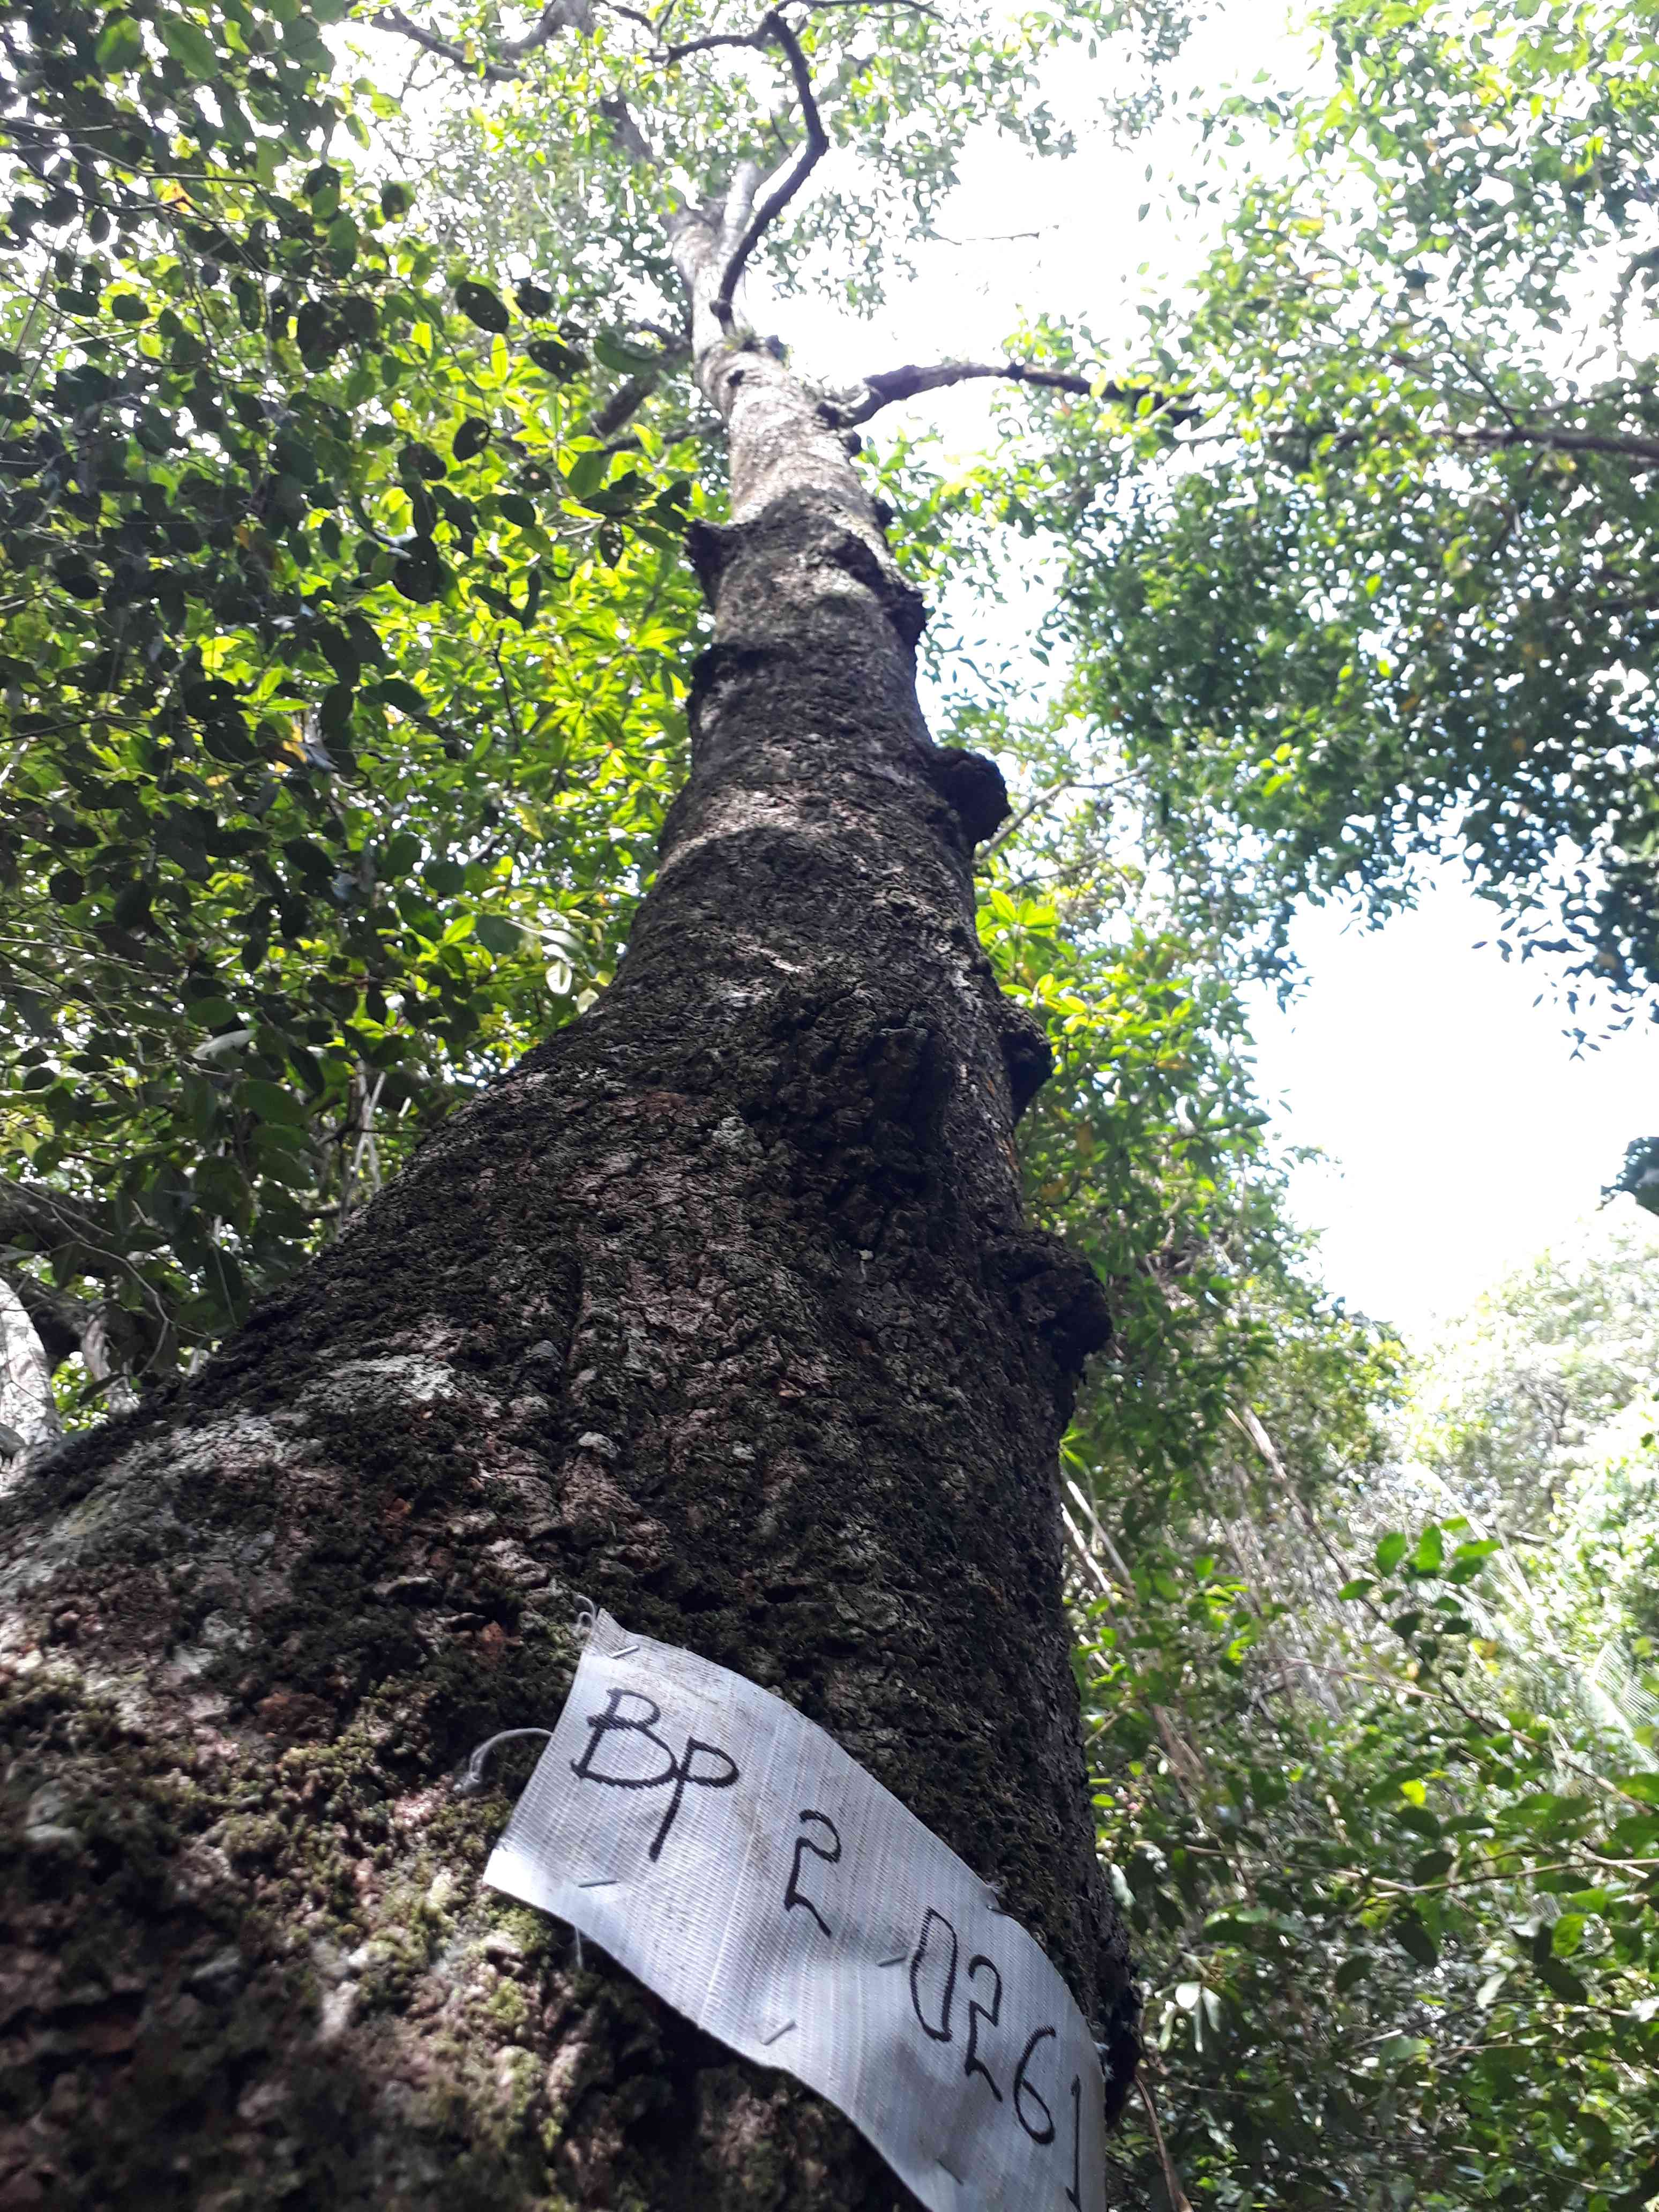 Bp 2 0261